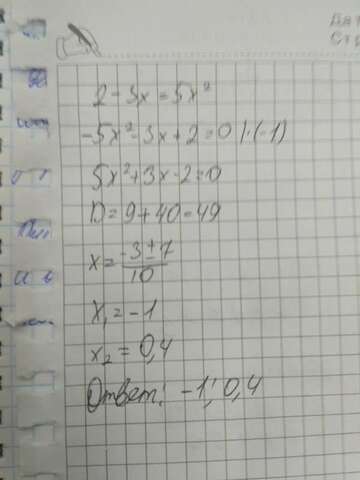 2 - 3x = 5x²
-5x² - 3x + 2 = 0 | · (-1)
5x² + 3x - 2 = 0
D = 9 + 40 = 49
x = (-3 ± 7) / 10
x₁ = -1
x₂ = 0,4
Ответ: -1; 0,4